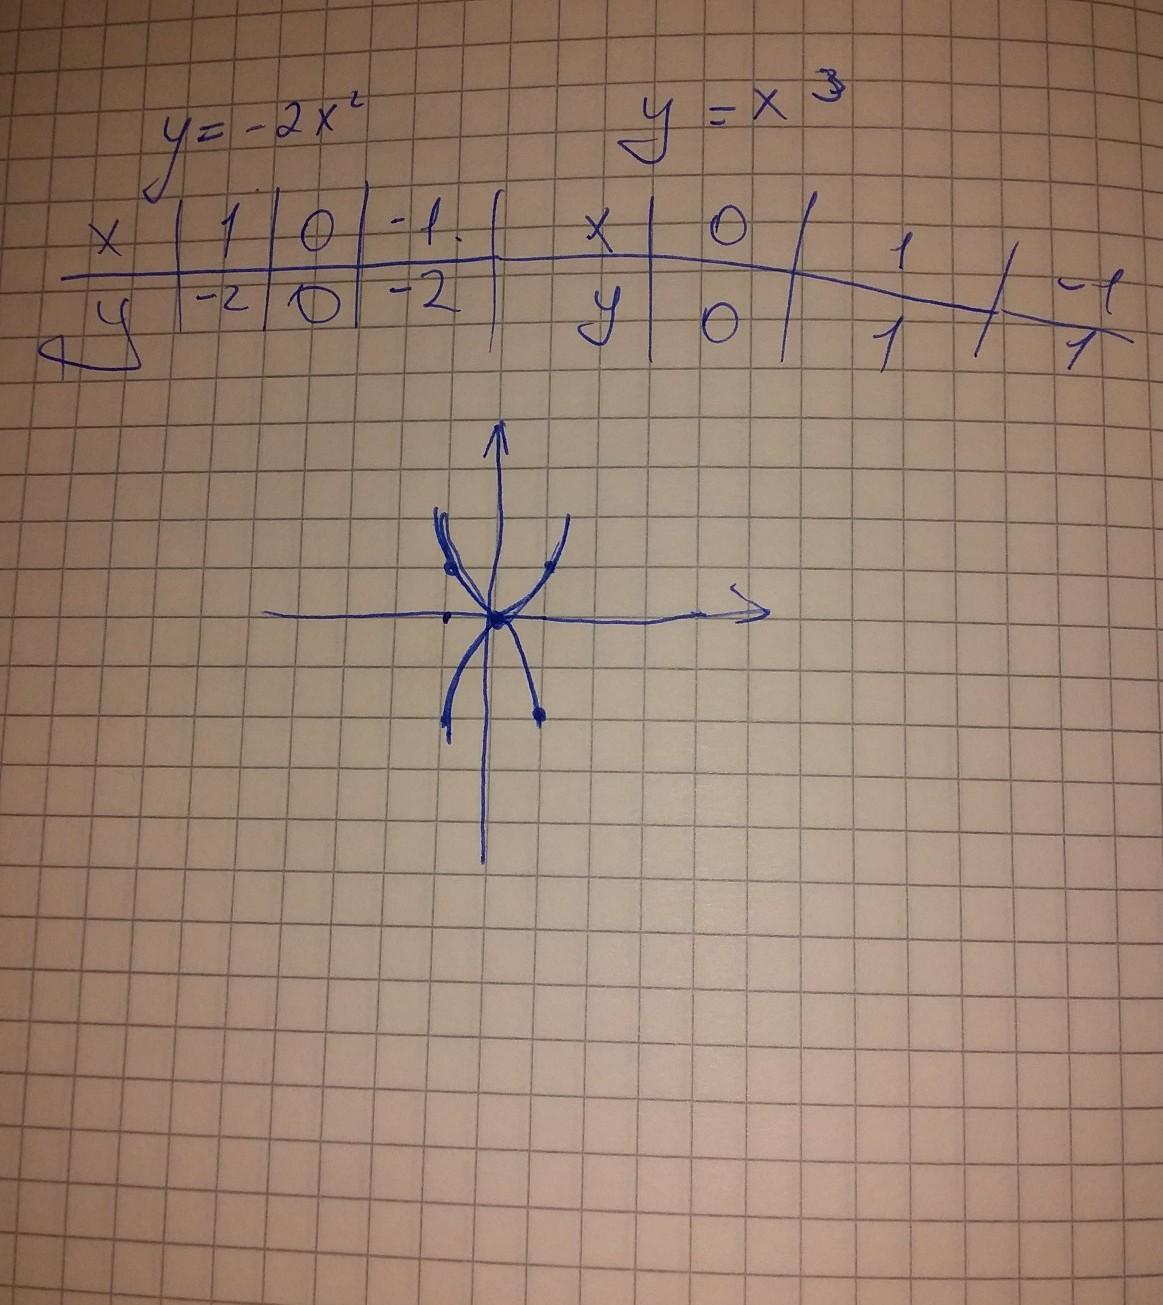 y = -2x² y = x³
x | 1 | 0 | -1. | x | 0 | 1 | -1
y | -2 | 0 | -2 | y | 0 | 1 | 1